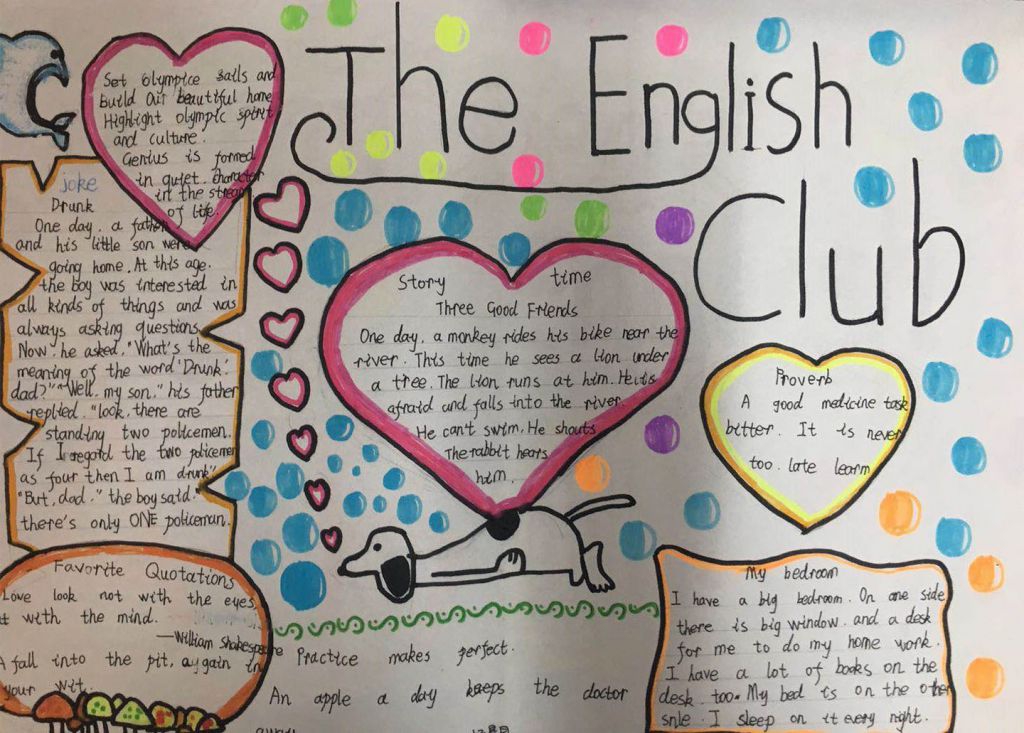 The English
Club
Set olympice sails and
build our beautiful home
Highlight olympic spirit
and culture.
Genius is formed
in quiet. character
in the stream
of life.
joke
Drunk
One day, a father
and his little son were
going home. At this age.
the boy was interested in
all kinds of things and was
always asking questions.
Now. he asked. "What's the
meaning of the word 'Drunk'.
dad?" "Well. my son." his father
replied. "look. there are
standing two policemen.
If I regard the two policemen
as four then I am drunk"
"But, dad." the boy said."
there's only ONE policeman.
Story time
Three Good Friends
One day, a monkey rides his bike near the
river. This time he sees a lion under
a tree. The lion runs at him. He is
afraid and falls into the river.
He can't swim. He shouts
The rabbit hears
him.
Proverb
A good medicine task
bitter. It is never
too. late learn
Favorite Quotations
Love look not with the eyes,
t with the mind.
—William Shakespeare
A fall into the pit, a gain in
your wit.
Practice makes perfect.
An apple a day keeps the doctor
away
My bedroom
I have a big bedroom. On one side
there is big window. and a desk
for me to do my home work.
I have a lot of books on the
desk. too. My bed is on the other
snle. I sleep on it every night.